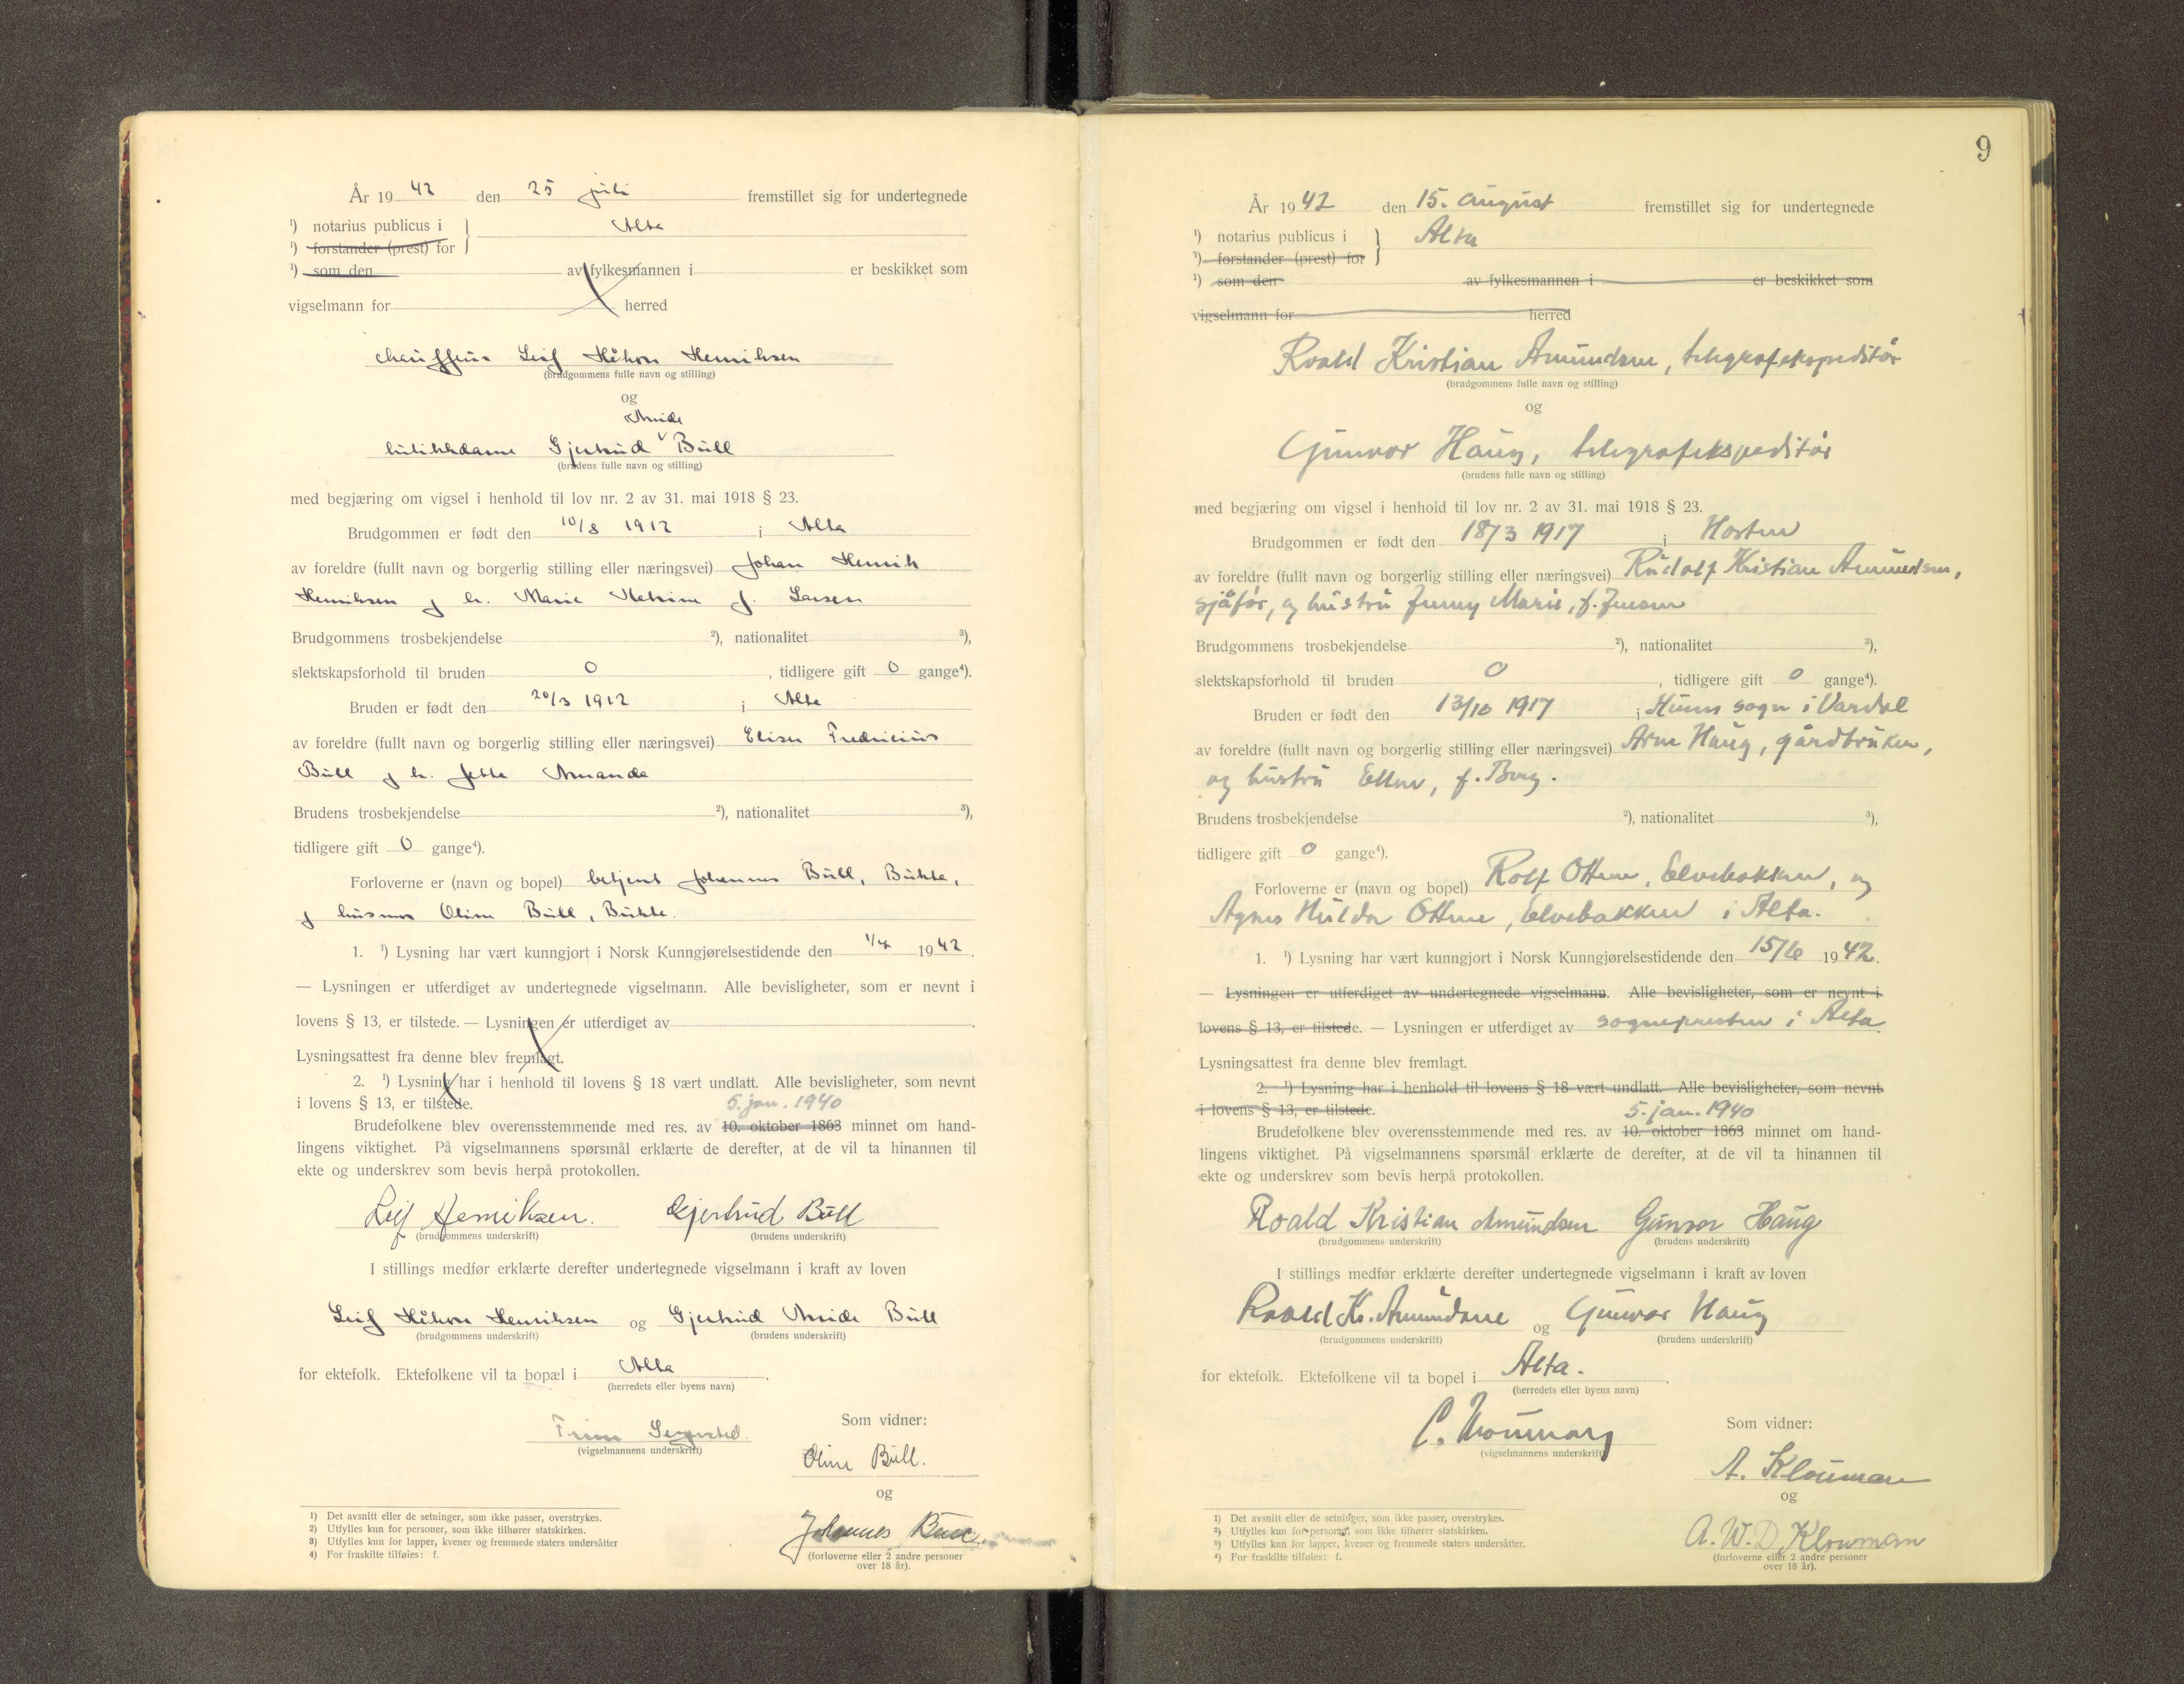 År 19 42 den 25 juli fremstillet sig for undertegnede
¹) notarius publicus i
Alta
¹) forstander (prest) for
¹) som den av fylkesmannen i er beskikket som
vigselmann for herred
chauffeur Leif Håkon Henriksen
(brudgommens fulle navn og stilling)
og
butikkdame Gjertrud Bull
(brudens fulle navn og stilling)
med begjæring om vigsel i henhold til lov nr. 2 av 31. mai 1918 § 23.
Brudgommen er født den 10/8 1912 i Alta
av foreldre (fullt navn og borgerlig stilling eller næringsvei) Johan Henrik
Henriksen og h. Marie f. Larsen
Brudgommens trosbekjendelse ²), nationalitet ³),
slektskapsforhold til bruden 0, tidligere gift 0 gange⁴).
Bruden er født den 20/3 1912 i Alta
av foreldre (fullt navn og borgerlig stilling eller næringsvei) Fredricius
Bull og h. Amanda
Brudens trosbekjendelse ²), nationalitet ³),
tidligere gift 0 gange⁴).
Forloverne er (navn og bopel) betjent Johannes Bull, Bukta,
og husmor Oline Bull, Bukta.
1. ¹) Lysning har vært kunngjort i Norsk Kunngjørelsestidende den 1/4 1942.
— Lysningen er utferdiget av undertegnede vigselmann. Alle bevisligheter, som er nevnt i
lovens § 13, er tilstede. — Lysningen er utferdiget av .
Lysningsattest fra denne blev fremlagt.
2. ¹) Lysning har i henhold til lovens § 18 vært undlatt. Alle bevisligheter, som nevnt
i lovens § 13, er tilstede.
5. jan. 1940
Brudefolkene blev overensstemmende med res. av 10. oktober 1863 minnet om hand-
lingens viktighet. På vigselmannens spørsmål erklærte de derefter, at de vil ta hinannen til
ekte og underskrev som bevis herpå protokollen.
Leif Henriksen. Gjertrud Bull
(brudgommens underskrift) (brudens underskrift)
I stillings medfør erklærte derefter undertegnede vigselmann i kraft av loven
Leif Håkon Henriksen og Gjertrud Bull
(brudgommens underskrift) (brudens underskrift)
for ektefolk. Ektefolkene vil ta bopæl i Alta.
(herredets eller byens navn)
Som vidner:
(vigselmannens underskrift)
Oline Bull.
og
Johannes Bull.
(forloverne eller 2 andre personer
over 18 år).
1) Det avsnitt eller de setninger, som ikke passer, overstrykes.
2) Utfylles kun for personer, som ikke tilhører statskirken.
3) Utfylles kun for lapper, kvener og fremmede staters undersåtter
4) For fraskilte tilføies: f.
9
År 1942 den 15. august fremstillet sig for undertegnede
¹) notarius publicus i
Alta
¹) forstander (prest) for
¹) som den av fylkesmannen i er beskikket som
vigselmann for herred
Roald Kristian Amundsen, telegrafekspeditør
(brudgommens fulle navn og stilling)
og
Gunvor Haug, telegrafekspeditør
(brudens fulle navn og stilling)
med begjæring om vigsel i henhold til lov nr. 2 av 31. mai 1918 § 23.
Brudgommen er født den 18/3 1917 i Horten
av foreldre (fullt navn og borgerlig stilling eller næringsvei) Rudolf Kristian Amundsen,
sjåfør, og hustru Jenny Marie, f. Jensen
Brudgommens trosbekjendelse ²), nationalitet ³),
slektskapsforhold til bruden 0, tidligere gift 0 gange⁴).
Bruden er født den 13/10 1917 i Hunns sogn i Vardal
av foreldre (fullt navn og borgerlig stilling eller næringsvei) Arne Haug, gårdbruker,
og hustru Ellen, f. Berg.
Brudens trosbekjendelse ²), nationalitet ³),
tidligere gift 0 gange⁴).
Forloverne er (navn og bopel) Rolf Ottem, Elvebakken, og
Agnes Hulda Ottem, Elvebakken i Alta.
1. ¹) Lysning har vært kunngjort i Norsk Kunngjørelsestidende den 15/6 1942.
— Lysningen er utferdiget av undertegnede vigselmann. Alle bevisligheter, som er nevnt i
lovens § 13, er tilstede. — Lysningen er utferdiget av sognepresten i Alta.
Lysningsattest fra denne blev fremlagt.
2. ¹) Lysning har i henhold til lovens § 18 vært undlatt. Alle bevisligheter, som nevnt
i lovens § 13, er tilstede.
5. jan. 1940
Brudefolkene blev overensstemmende med res. av 10. oktober 1863 minnet om hand-
lingens viktighet. På vigselmannens spørsmål erklærte de derefter, at de vil ta hinannen til
ekte og underskrev som bevis herpå protokollen.
Roald Kristian Amundsen Gunvor Haug
(brudgommens underskrift) (brudens underskrift)
I stillings medfør erklærte derefter undertegnede vigselmann i kraft av loven
Roald Kr. Amundsen og Gunvor Haug
(brudgommens underskrift) (brudens underskrift)
for ektefolk. Ektefolkene vil ta bopel i Alta.
(herredets eller byens navn)
Som vidner:
(vigselmannens underskrift)
A. Klouman
og
A. W. D. Klouman
(forloverne eller 2 andre personer
over 18 år).
1) Det avsnitt eller de setninger, som ikke passer, overstrykes.
2) Utfylles kun for personer, som ikke tilhører statskirken.
3) Utfylles kun for lapper, kvener og fremmede staters undersåtter.
4) For fraskilte tilføies: f.